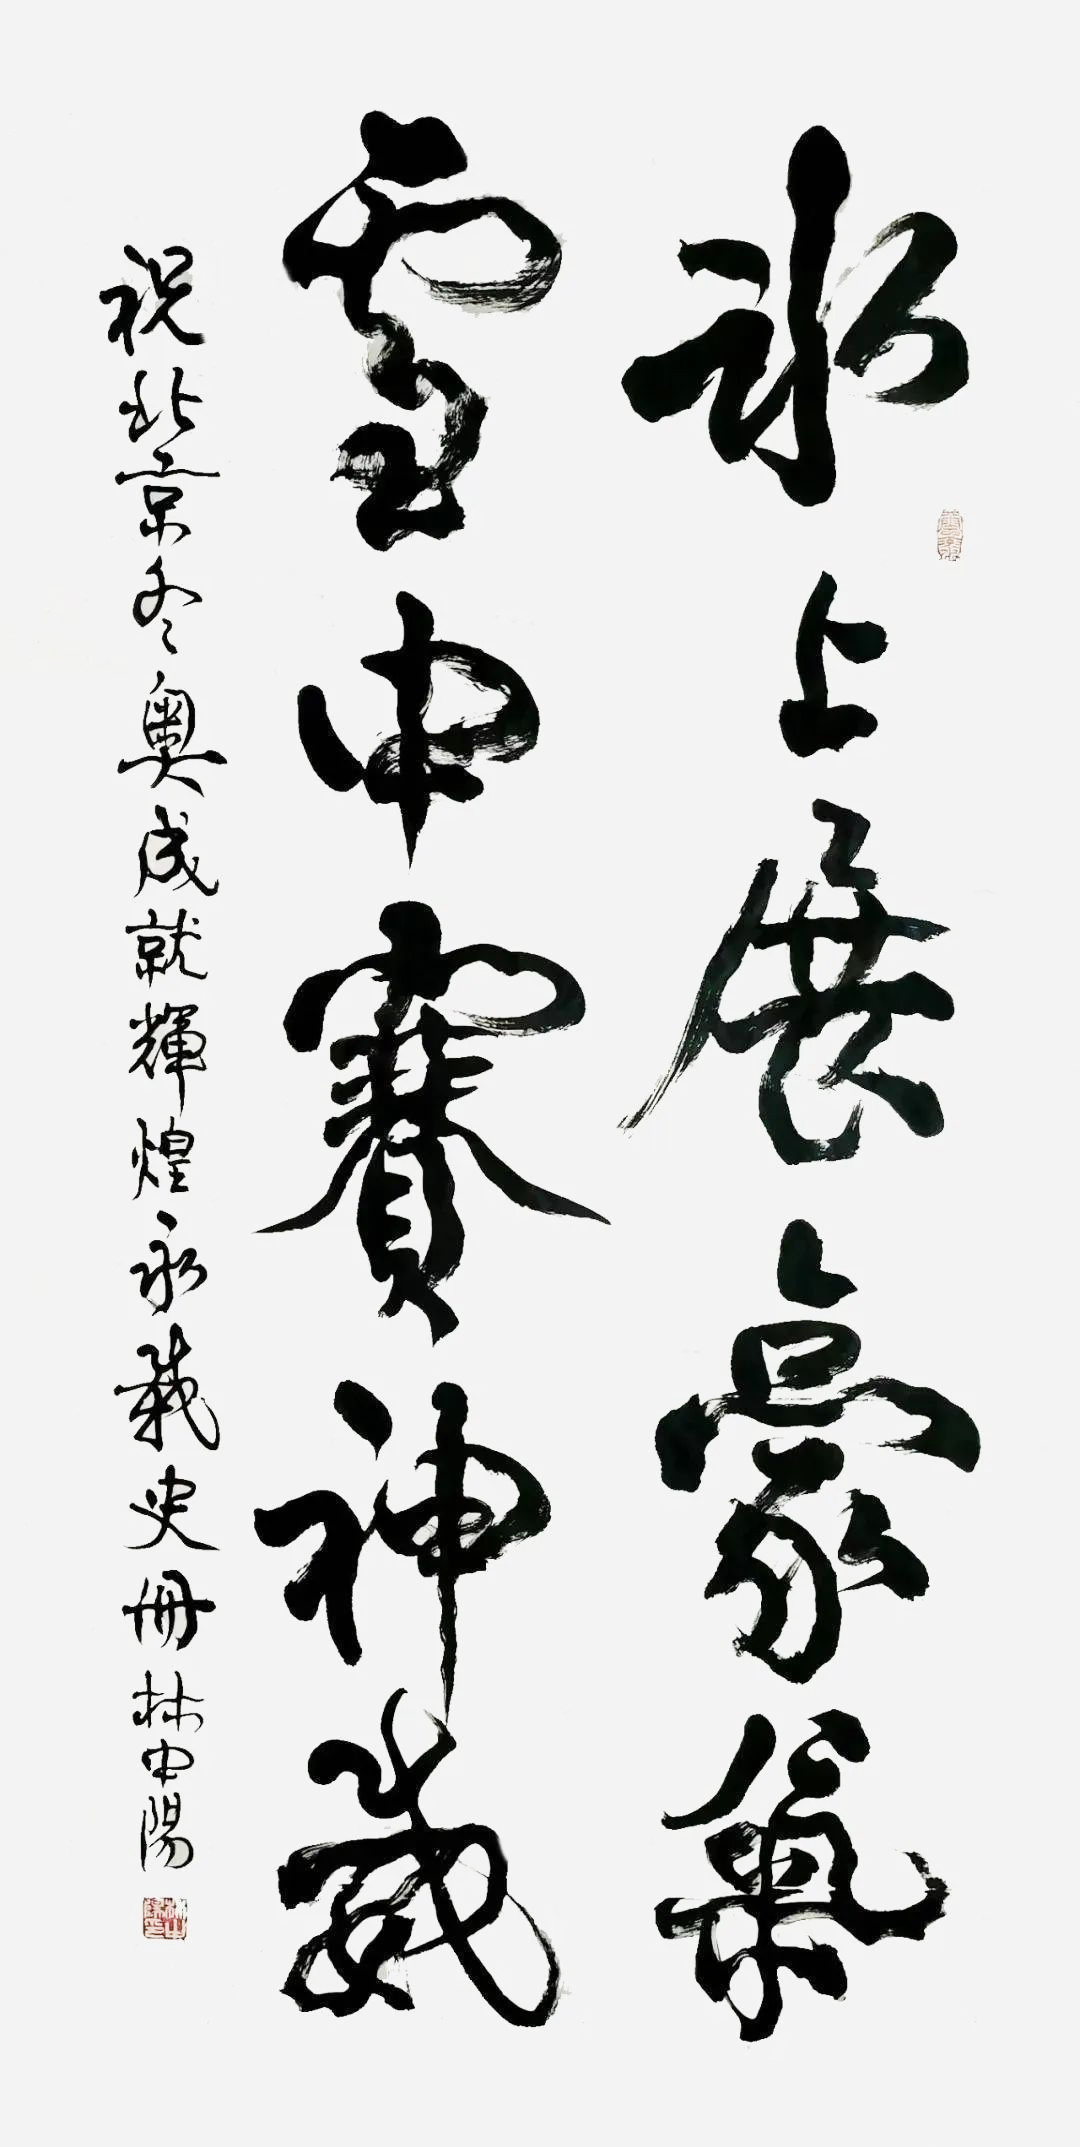 冰上展豪氣
雪中賽神威
祝北京冬奧成就輝煌永載史冊林中陽